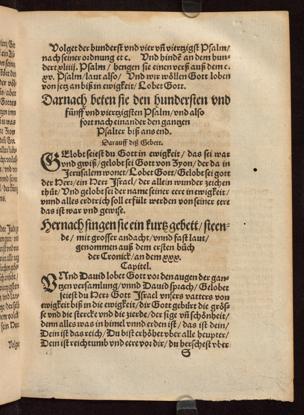 Volget der hundertst vnd vier vñ viertzigst Psalm/
nach seiner ordnung etc. Vnd bindẽ an dem hun-
dert xliiii. Psalm/ hengen sie einen verß auß dem c.
xv. Psalm/ laut also/ Vnd wir wöllen Gott loben
von jetz an biß in ewigkeit/ Lobet Gott.
Darnach beten sie den hundersten vnd
fünff vnd viertzigsten Psalm/ vnd also
fort nach einander den gantzen
Psalter biß ans end.
Darauff diß Gebett.
GElobt seiest du Gott in ewigkeit/ das sei war
vnd gwiß/ gelobt sei Gott von Zyon/ der da in
Jerusalem wonet/ Lobet Gott/ Gelobt sei gott
der Herr/ ein Herr Israel/ der allein wunder zeichen
thůt/ Vnd gelobt sei der name seiner eere in ewigkeit/
vnnd alles erdtrich soll erfült werden von seiner eere
das ist war vnd gewiß.
Hernach singen sie ein kurtz gebett/ steen-
de/ mit grosser andacht/ vnnd fast laut/
genommen auß dem ersten bůch
der Cronick/ an dem xxx.
Capitel.
VNnd Dauid lobet Gott vor den augen der gan-
tzen versamlung/ vnnd Dauid sprach/ Gelobet
seiest du Herr Gott Israel vnsers vatters von
ewigkeit biß in die ewigkeit/ dir Gott gebürt die grös-
se vnd die stercke vnd die zierde/ der sige vñ schönheit/
denn alles was in himel vnnd erden ist/ das ist dein/
Dein ist das reich/ Du bist erhöhet vber alle heupter/
Dein ist reichtumb vnd eere vor dir/ du herschest vber
S